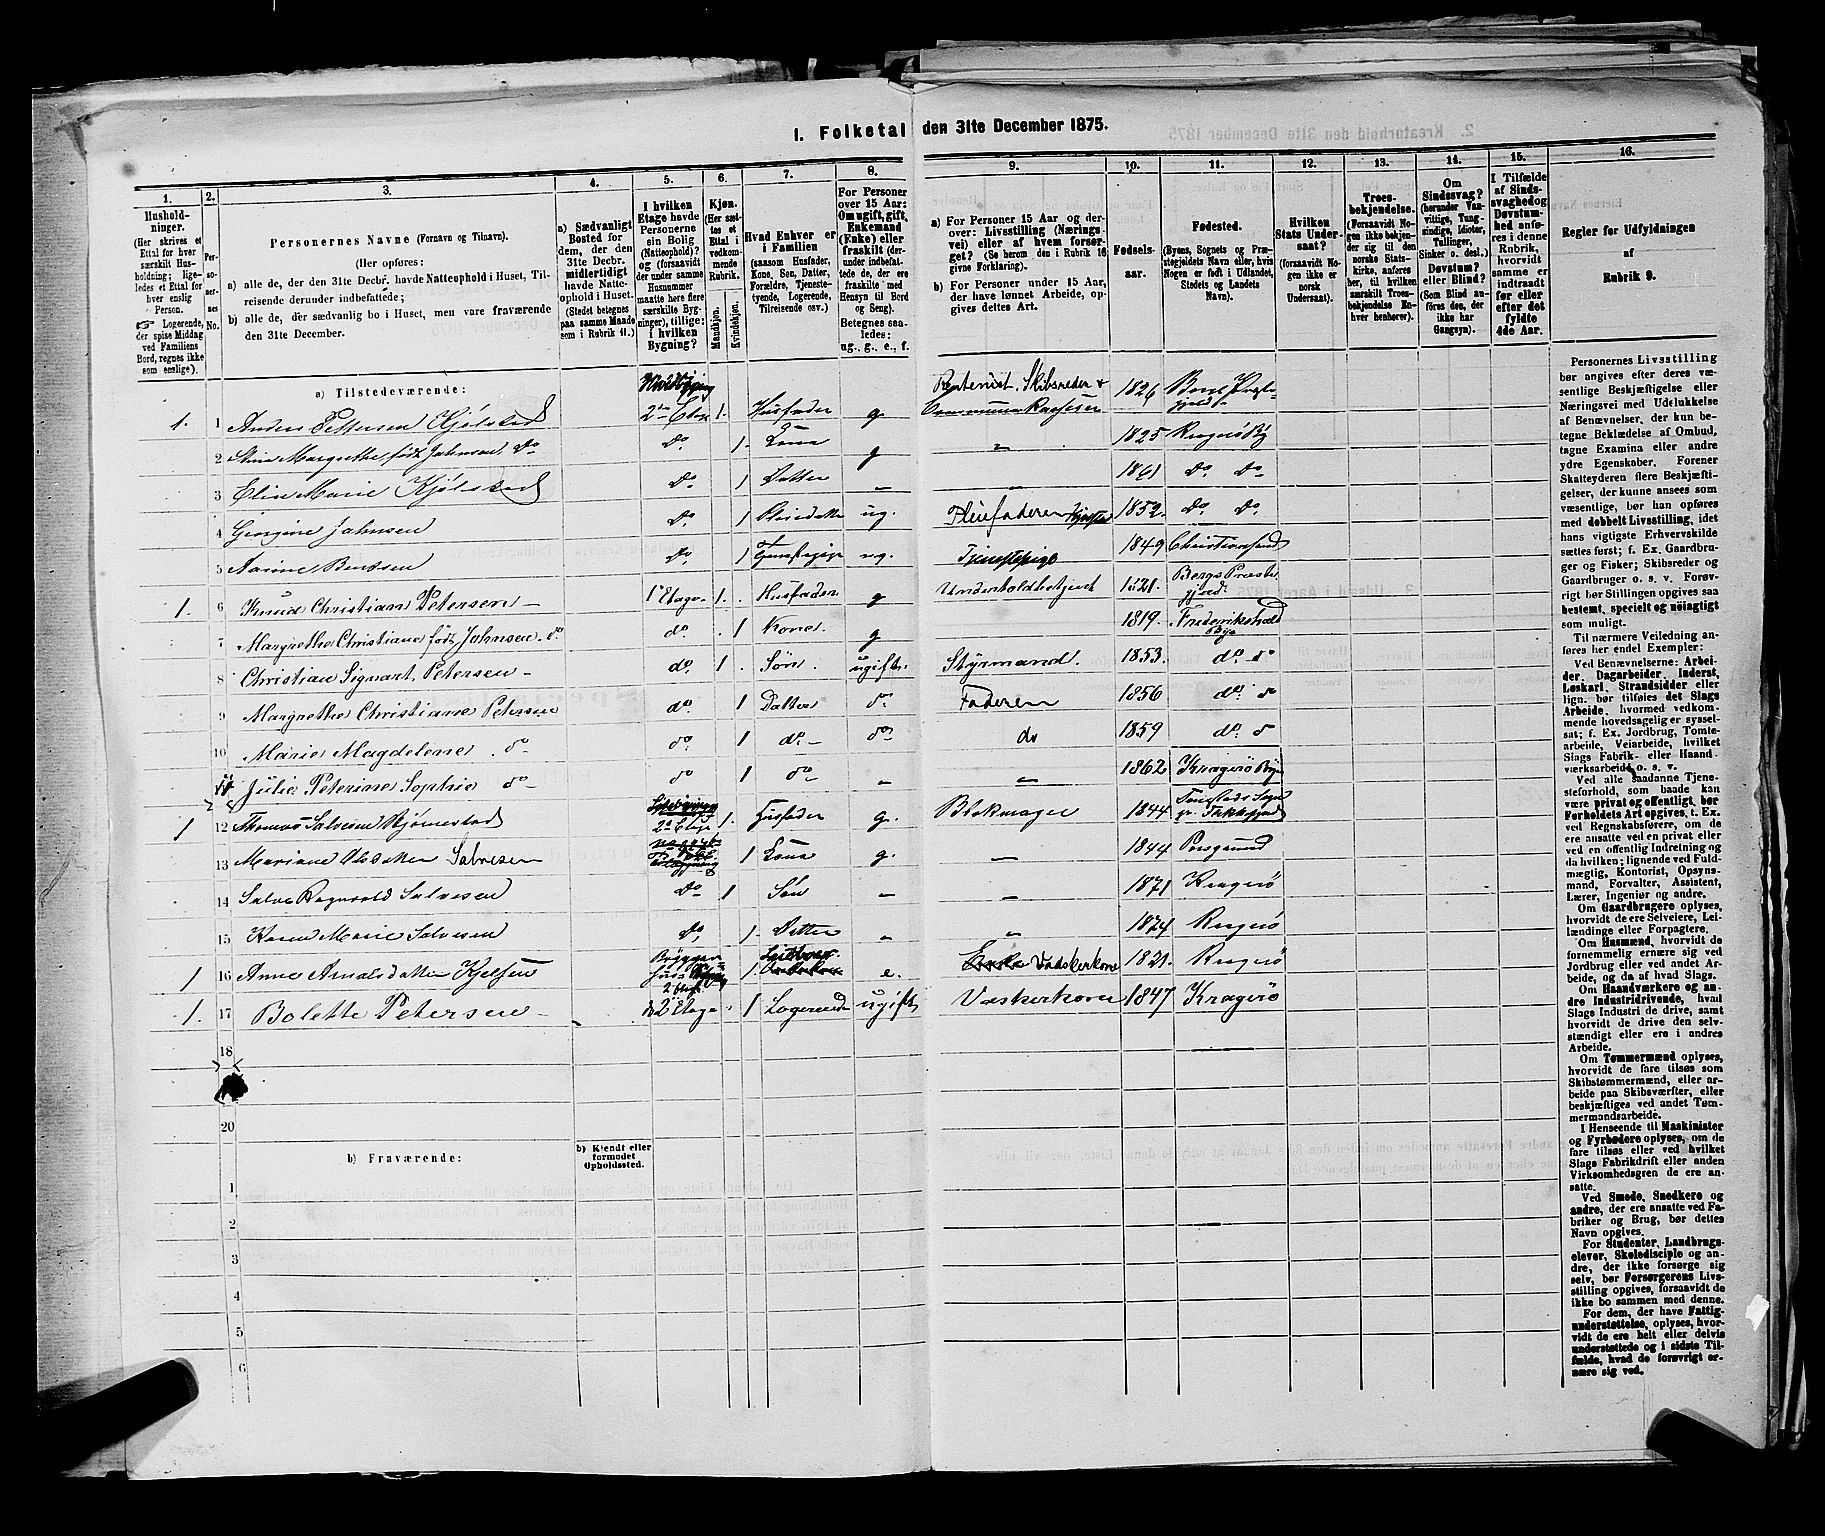 1. Folketal den 31te December 1875.
1.
Hushold-
ninger.
(Her skrives et
Ettal for hver
særskilt Hus-
holdning; lige-
ledes et Ettal for
hver enslig
Person.
☞ Logerende,
der spise Middag
ved Familiens
Bord, regnes ikke
som enslige).
2.
Personernes No.
3.
Personernes Navne (Fornavn og Tilnavn).
(Her opføres:
a) alle de, der den 31te Decbr. havde Natteophold i Huset, Til-
reisende derunder indbefattede;
b) alle de, der sædvanlig bo i Huset, men vare fraværende
den 31te December.
4.
a) Sædvanligt
Bosted for
dem, der den
31te Decbr.
midlertidigt
havde Natte-
ophold i Huset.
(Stedet betegnes
paa samme Maade
som i Rubrik 11.)
5.
I hvilken
Etage havde
Personerne
sin Bolig
(Natteophold)?
og (forsaavidt
der under samme
Husnummer
maatte høre flere
særskilte Byg-
ninger), tillige:
i hvilken
Bygning?
6.
Kjøn.
(Her sæt-
tes et
Ettal i
vedkom-
mende
Rubrik.
Mandkjøn.
Kvindekjøn.
7.
Hvad Enhver er
i Familien
(saasom Husfader,
Kone, Søn, Datter,
Forældre, Tjeneste-
tyende, Logerende,
Tilreisende osv.)
8.
For Personer
over 15 Aar:
Om ugift, gift,
Enkemand
(Enke) eller
fraskilt (der-
under indbefat-
tede de, der ere
fraskilte med
Hensyn til Bord
og Seng).
Betegnes saa-
ledes:
ug., g., e., f.
9.
a) For Personer 15 Aar og der-
over: Livsstilling (Nærings-
vei) eller af hvem forsør-
get? (Se herom den i Rubrik 16
givne Forklaring).
b) For Personer under 15 Aar,
der have lønnet Arbeide, op-
gives dettes Art.
10.
Fødsels-
aar.
11.
Fødested.
(Byens, Sognets og Præ-
stegjeldets Navn eller, hvis
Nogen er født i Udlandet,
Stedets og Landets
Navn).
12.
Hvilken
Stats Under-
saat?
(forsaavidt No-
gen ikke er
norsk
Undersaat).
13.
Troes-
bekjendelse.
(Forsaavidt No-
gen ikke bekjen-
der sig til den
norske Stats-
kirke, anføres
her, til hvilken
særskilt Troes-
bekjendelse En-
hver henhører).
14.
Om
Sindssvag?
(herunder Van-
vittige, Tung-
sindige, Idioter,
Tullinger,
Sinker o. desl.)
Døvstum?
eller Blind?
(Som Blind an-
føres den, der
ikke har
Gangsyn).
15.
I Tilfælde
af Sinds-
svaghed og
Døvstum-
hed anfø-
res i denne
Rubrik,
hvorvidt
samme er
indtraadt
før eller
efter det
fyldte
4de Aar.
16.
Regler for Udfyldningen
af
Rubrik 9.
a) Tilstedeværende:
1. 1 Anders Pettersen Kjølstad 2den Etage 1. Husfader g Rentenist, Skibsreder & Communekasserer 1826
2 Ane Margrethe født Jahnsen, Do Do 1. Kone g „ 1825 Kragerö By
3 Elin Marie Kjölstad Do 1 Datter — — 1861 Do Do
4 Georgine Jahnsen Do 1 Pleiedatter ug. Pleiefaderen Kjølstad 1852. Do Do
5 Aasine Bentsen Do 1 Tjenestepige ug. Tjenestepige 1849 Christiansand
1. 6 Knud Christian Petersen — 1ste Etage 1. Husfader g Underholdsbetjent 1821. Bergs Præstegjeld.
7 Margrethe Christiane født Jahnsen do. do. 1 Kone g 1819. Frederikshald By
8 Christian Signart Petersen — do. 1. Søn. ugift. Styrmand. 1853. do. do
9 Margrethe Christiane Petersen do. 1 Datter do Faderen 1856 do. do
10 Marie Magdelene do do 1 do. — do do 1859 do. do
11 Julie Peterine Sophie do do 1 do „ „ 1862 Kragerö By
1 12 Thomas Salvesen Bjørnestad 2den Etage 1. Husfader g. Blokmager 1844
13 Mariane Olsdatter Salvesen 1 Kone g. — 1844 Porsgrund
14 Salve Ragnvald Salvesen Do 1 Sön — „ 1871 Kragerö
15 Karen Marie Salvesen Do, 1. Datter „ „ 1874 Kragerö
1 16 Anne Arnalsdatter Kjelsen 1 e. Vadskerkone 1821. Kragerö
1. 17 Bolette Petersen — 2den Etage 1 Logerende ugift, Vaskerkone 1847 Kragerö
18
20
b) Fraværende:
b) Kjendt eller
formodet
Opholdssted.
1
2
3
4
5
6
Personernes Livsstilling
bør angives efter deres væ-
sentlige Beskjæftigelse eller
Næringsvei med Udelukkelse
af Benævnelser, der kun be-
tegne Beklædelse af Ombud,
tagne Examina eller andre
ydre Egenskaber. Forener
Skatteyderen flere Beskjæfti-
gelser, der kunne ansees som
væsentlige, bør han opføres
med dobbelt Livsstilling, idet
hans vigtigste Erhvervskilde
sættes først; f. Ex. Gaardbru-
ger og Fisker; Skibsreder og
Gaardbruger o. s. v. Forøv-
rigt bør Stillingen opgives saa
bestemt, specielt og nøiagtigt
som muligt.
Til nærmere Veiledning an-
føres her endel Exempler:
Ved Benævnelserne: Arbei-
der, Dagarbeider, Inderst,
Løskarl, Strandsidder eller
lign. bør tilføies det Slags
Arbeide, hvormed vedkom-
mende hovedsagelig er syssel-
sat; f. Ex. Jordbrug, Tomte-
arbeide, Veiarbeide, hvilket
Slags Fabrik- eller Haand-
værksarbeide o. s. v.
Ved alle saadanne Tjene-
steforhold, som baade kan
være privat og offentligt, bør
Forholdets Art opgives, f. Ex.
ved Regnskabsførere, om de
ere ansatte ved en privat eller
ved en offentlig Indretning og
da hvilken; lignende ved Fuld-
mægtig, Kontorist, Opsyns-
mand, Forvalter, Assistent,
Lærer, Ingeniør og andre.
Om Gaardbrugere oplyses,
hvorvidt de ere Selveiere, Lei-
lændinge eller Forpagtere.
Om Husmænd, hvorvidt de
fornemmelig ernære sig ved
Jordbrug eller ved andet Ar-
beide, og da af hvad Slags.
Om Haandværkere og an-
dre Industridrivende, hvad
Slags Industri de drive, samt
hvorvidt de drive den selv-
stændigt eller ere i andres
Arbeide.
Om Tømmermænd oplyses,
hvorvidt de fare tilsøs som
Skibstømmermænd, eller ar-
beide paa Skibsværfter, eller
beskjæftiges ved andet Tøm-
mermandsarbeide.
I Henseende til Maskinister
og Fyrbødere oplyses, om de
fare tilsøs eller ved hvilket
Slags Fabrikdrift eller anden
Virksomhedsgren de ere an-
satte.
Ved Smede, Snedkere og
andre, der ere ansatte ved Fa-
briker og Brug, bør dettes
Navn opgives.
For Studenter, Landbrugs-
elever, Skoledisciple og an-
dre, der ikke forsørge sig
selv, bør Forsørgerens Livs-
stilling opgives, forsaavidt de
ikke bo sammen med denne.
For dem, der have Fattig-
understøttelse, oplyses, hvor-
vidt de ere helt eller delvis
understøttede og i sidste Til-
fælde, hvad de forøvrigt er-
nære sig ved.